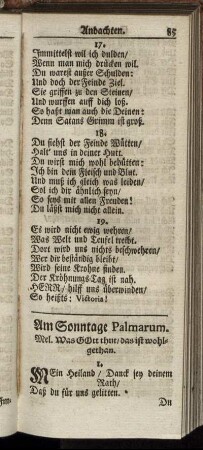 Andachten. 85
17.
Immittelst wil ich dulden/
Wenn man mich drücken wil.
Du warest ausser Schulden:
Und doch der Feinde Ziel.
Sie griffen zu den Steinen/
Und wurffen auff dich loß.
So hasst man auch die Deinen:
Denn Satans Grimm ist groß.
18.
Du siehst der Feinde Wütten/
Halt' uns in deiner Hutt.
Du wirst mich wohl behütten:
Ich bin dein Fleisch und Blut.
Und muß ich gleich was leiden/
Sol ich dir ähnlich seyn/
So seys mit allen Freuden!
Du läßst mich nicht allein.
19.
Es wird nicht ewig wehren/
Was Welt und Teufel
Dort wird uns nichts beschwehren/
Wer dir beständig bleibt/
Wird seine Krohne finden.
Der Kröhnungs-Tag ist nah.
HERR/ hilff uns überwinden/
So heißts: Victoria!
Am Sonntage Palmarum.
Mel. Was GOtt thut/ das ist wohl-
gethan.
1.
MEin Heiland/ Danck sey deinem
Rath/
Daß du für uns gelitten.
Du